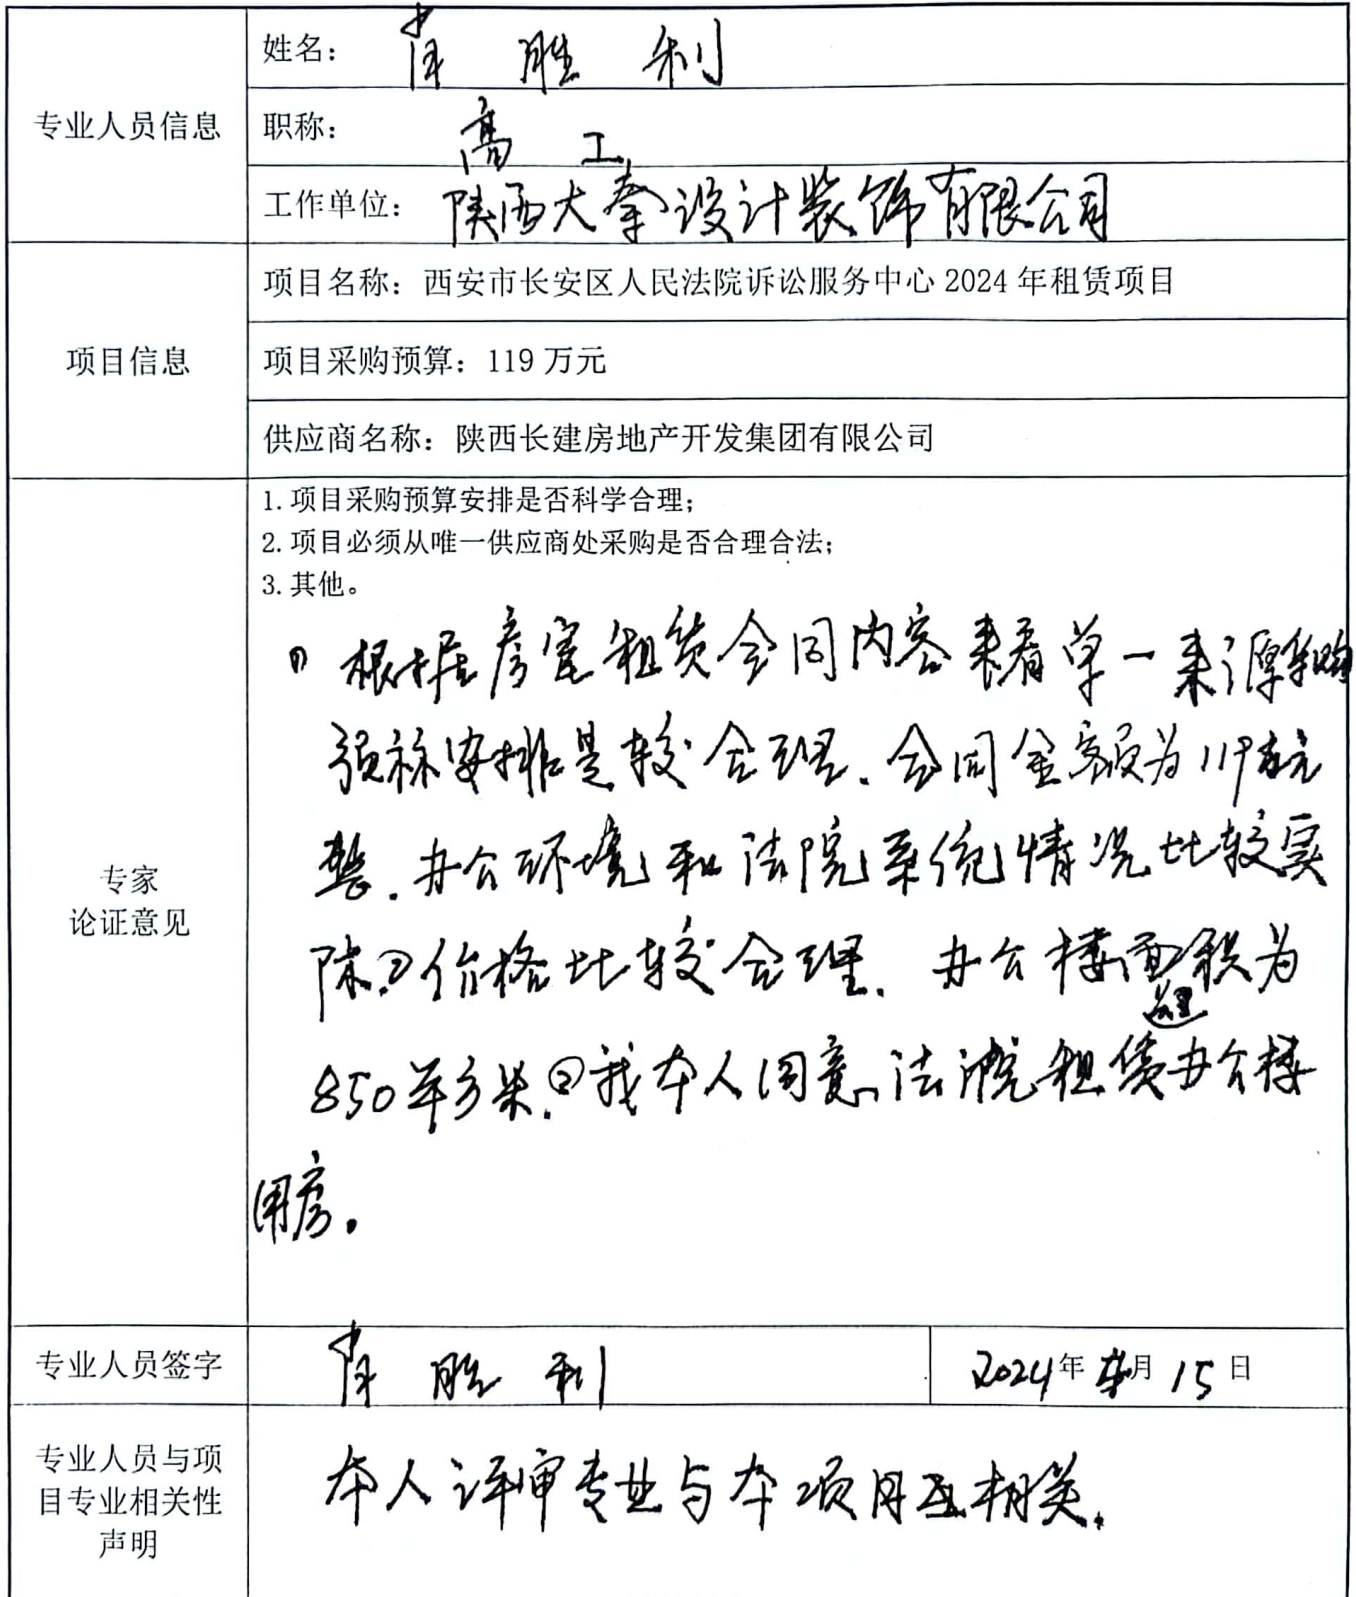 专业人员信息
姓名： 肖胜利
职称： 高工
工作单位： 陕西大秦设计装饰有限公司
项目信息
项目名称：西安市长安区人民法院诉讼服务中心 2024 年租赁项目
项目采购预算：119 万元
供应商名称：陕西长建房地产开发集团有限公司
专家
论证意见
1.项目采购预算安排是否科学合理；
2.项目必须从唯一供应商处采购是否合理合法；
3.其他。
① 根据房屋租赁合同内容来看单一来源采购
预标安排是较合理．合同金额为119万元
整．办公环境和法院系统情况比较实
际.②价格比较合理．办公楼面积为
850平方米.③我本人同意法院租赁办公楼
用房。
专业人员签字
肖胜利
2024年 月15日
专业人员与项
目专业相关性
声明
本人评审专业与本项目互相关．